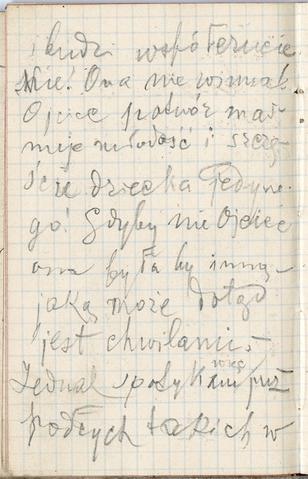 i budzi współczucie
nie! Ona nie winna!
Ojciec potwór mar-
nuje młodość i szczę-
ście dziecka jedyne-
go! Gdyby nie Ojciec
ona byłaby inną
jaką może dotąd
jest chwilami.-
Jednak spotykam więc
podłych takich w